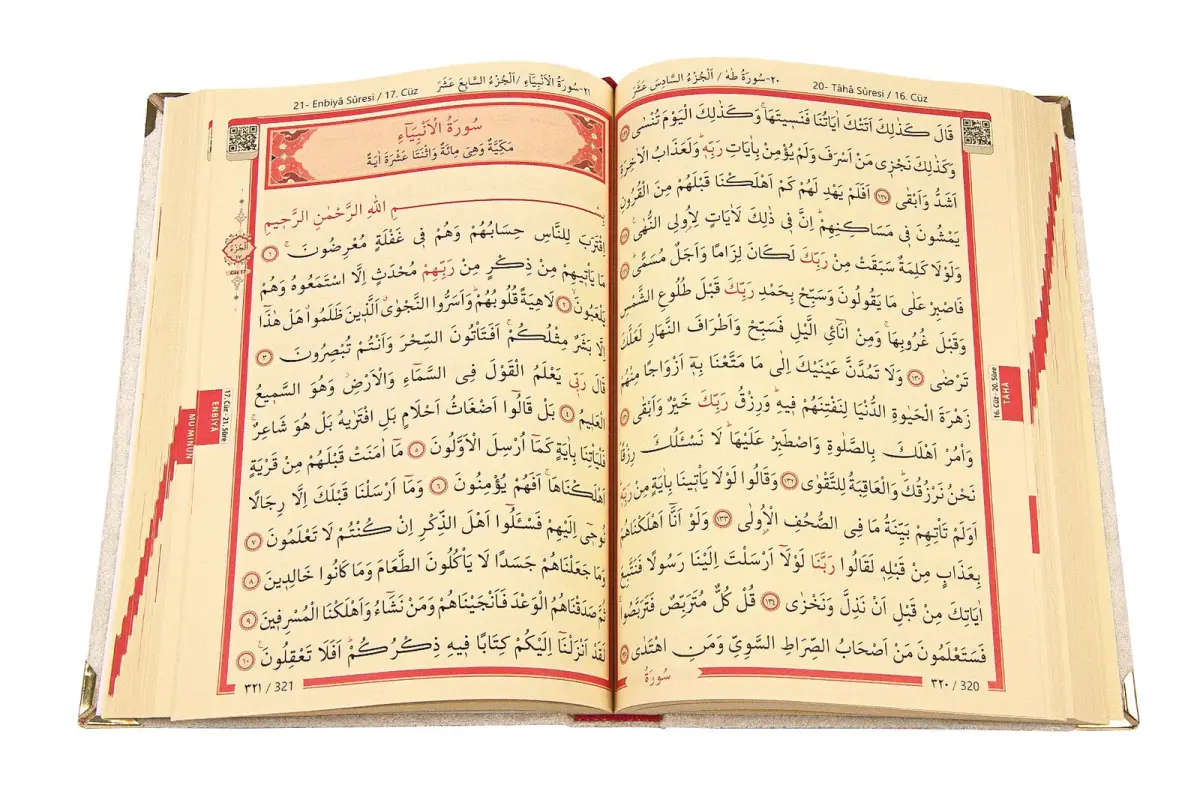 ٢٠-سُورَةُ طٰهٰ / اَلْجُزْءُ السَّادِسَ عَشَرَ
20- Tâhâ Sûresi / 16. Cüz
قَالَ كَذٰلِكَ اَتَتْكَ اٰيَاتُنَا فَنَسِيتَهَاۚ وَكَذٰلِكَ الْيَوْمَ تُنْسٰى
وَكَذٰلِكَ نَجْزٖي مَنْ اَسْرَفَ وَلَمْ يُؤْمِنْ بِاٰيَاتِ رَبِّهٖؕ وَلَعَذَابُ الْاٰخِرَةِ
اَشَدُّ وَاَبْقٰى ١٢٧ اَفَلَمْ يَهْدِ لَهُمْ كَمْ اَهْلَكْنَا قَبْلَهُمْ مِنَ الْقُرُونِ
يَمْشُونَ فٖي مَسَاكِنِهِمْؕ اِنَّ فٖي ذٰلِكَ لَاٰيَاتٍ لِاُولِي النُّهٰى
وَلَوْلَا كَلِمَةٌ سَبَقَتْ مِنْ رَبِّكَ لَكَانَ لِزَامًا وَاَجَلٌ مُسَمًّى
فَاصْبِرْ عَلٰى مَا يَقُولُونَ وَسَبِّحْ بِحَمْدِ رَبِّكَ قَبْلَ طُلُوعِ الشَّمْسِ
وَقَبْلَ غُرُوبِهَاۚ وَمِنْ اٰنَٓائِ الَّيْلِ فَسَبِّحْ وَاَطْرَافَ النَّهَارِ لَعَلَّكَ
تَرْضٰى ١٣٠ وَلَا تَمُدَّنَّ عَيْنَيْكَ اِلٰى مَا مَتَّعْنَا بِهٖٓ اَزْوَاجًا مِنْهُمْ
زَهْرَةَ الْحَيٰوةِ الدُّنْيَا لِنَفْتِنَهُمْ فٖيهِؕ وَرِزْقُ رَبِّكَ خَيْرٌ وَاَبْقٰى
وَأْمُرْ اَهْلَكَ بِالصَّلٰوةِ وَاصْطَبِرْ عَلَيْهَاؕ لَا نَسْـَٔلُكَ رِزْقًاؕ
نَحْنُ نَرْزُقُكَؕ وَالْعَاقِبَةُ لِلتَّقْوٰى ١٣٢ وَقَالُوا لَوْلَا يَأْتٖينَا بِاٰيَةٍ مِنْ رَبِّهٖؕ
اَوَلَمْ تَأْتِهِمْ بَيِّنَةُ مَا فِي الصُّحُفِ الْاُو۫لٰى ١٣٣ وَلَوْ اَنَّٓا اَهْلَكْنَاهُمْ
بِعَذَابٍ مِنْ قَبْلِهٖ لَقَالُوا رَبَّنَا لَوْلَٓا اَرْسَلْتَ اِلَيْنَا رَسُولًا فَنَتَّبِعَ
اٰيَاتِكَ مِنْ قَبْلِ اَنْ نَذِلَّ وَنَخْزٰى ١٣٤ قُلْ كُلٌّ مُتَرَبِّصٌ فَتَرَبَّصُواۚ
فَسَتَعْلَمُونَ مَنْ اَصْحَابُ الصِّرَاطِ السَّوِيِّ وَمَنِ اهْتَدٰى
سُورَةُ
٣٢٠ / 320
16. Cüz - 20. Sûre
TÂHÂ
٢١-سُورَةُ الْاَنْبِيَٓاءِ / اَلْجُزْءُ السَّابِعَ عَشَرَ
21- Enbiyâ Sûresi / 17. Cüz
سُورَةُ الْاَنْبِيَٓاءِ
مَكِّيَّةٌ وَهِيَ مِائَةٌ وَاثْنَتَا عَشْرَةَ اٰيَةً
بِسْمِ اللّٰهِ الرَّحْمٰنِ الرَّحٖيمِ
اِقْتَرَبَ لِلنَّاسِ حِسَابُهُمْ وَهُمْ فٖي غَفْلَةٍ مُعْرِضُونَۚ ١
مَا يَأْتٖيهِمْ مِنْ ذِكْرٍ مِنْ رَبِّهِمْ مُحْدَثٍ اِلَّا اسْتَمَعُوهُ وَهُمْ
يَلْعَبُونَۙ ٢ لَاهِيَةً قُلُوبُهُمْؕ وَاَسَرُّوا النَّجْوٰىۗ اَلَّذٖينَ ظَلَمُواۗ هَلْ هٰذَٓا
اِلَّا بَشَرٌ مِثْلُكُمْۚ اَفَتَأْتُونَ السِّحْرَ وَاَنْتُمْ تُبْصِرُونَ ٣
قَالَ رَبّٖي يَعْلَمُ الْقَوْلَ فِي السَّمَٓاءِ وَالْاَرْضِؗ وَهُوَ السَّمٖيعُ
الْعَلٖيمُ ٤ بَلْ قَالُٓوا اَضْغَاثُ اَحْلَامٍ بَلِ افْتَرٰيهُ بَلْ هُوَ شَاعِرٌۚ
فَلْيَأْتِنَا بِاٰيَةٍ كَمَٓا اُرْسِلَ الْاَوَّلُونَ ٥ مَٓا اٰمَنَتْ قَبْلَهُمْ مِنْ قَرْيَةٍ
اَهْلَكْنَاهَاۚ اَفَهُمْ يُؤْمِنُونَ ٦ وَمَٓا اَرْسَلْنَا قَبْلَكَ اِلَّا رِجَالًا
نُوحٖٓي اِلَيْهِمْ فَسْـَٔلُٓوا اَهْلَ الذِّكْرِ اِنْ كُنْتُمْ لَا تَعْلَمُونَ ٧
وَمَا جَعَلْنَاهُمْ جَسَدًا لَا يَأْكُلُونَ الطَّعَامَ وَمَا كَانُوا خَالِدٖينَ ٨
ثُمَّ صَدَقْنَاهُمُ الْوَعْدَ فَاَنْجَيْنَاهُمْ وَمَنْ نَشَٓاءُ وَاَهْلَكْنَا الْمُسْرِفٖينَ ٩
لَقَدْ اَنْزَلْنَٓا اِلَيْكُمْ كِتَابًا فٖيهِ ذِكْرُكُمْؕ اَفَلَا تَعْقِلُونَ۟ ١٠
٣٢١ / 321
اَلْجُزْءُ
١٧
CÜZ 17
17. Cüz - 21. Sûre
ENBİYÂ
MU'MİNÛN